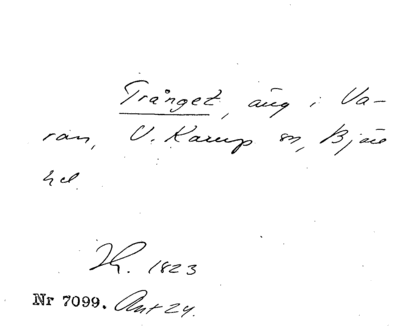 Trånget, äng i Va-
ran, V. Karup sn, Bjäre
hd
Jh. 1823
Nr 7099. Ant 24.